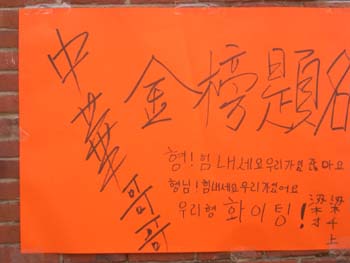 中華哥哥
金榜題名
형! 힘내세요 우리가 있잖아요
형님! 힘내세요 우리가 있어요
우리형 화이팅!